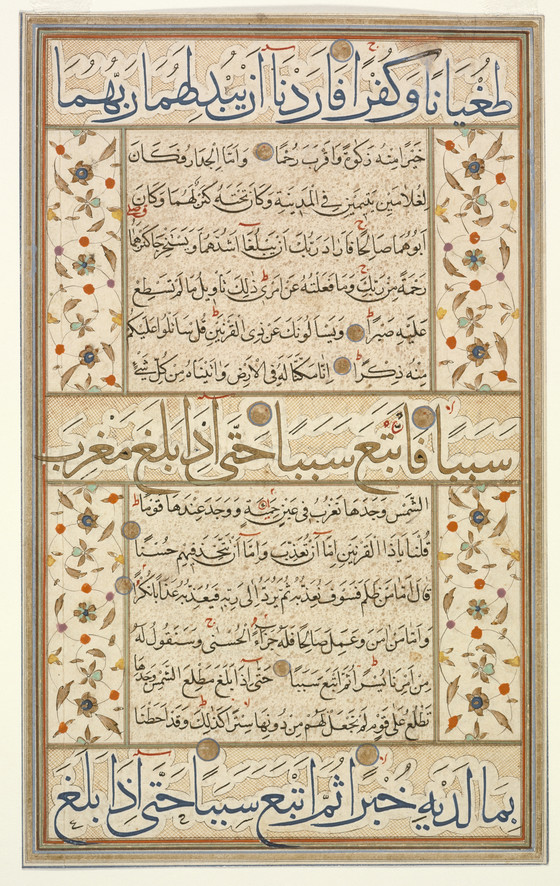 طغيانا وكفرا فاردنا ان يبدلهما ربهما
خيرا منه زكوة واقرب رحما واما الجدار فكان
لغلامين يتيمين في المدينة وكان تحته كنز لهما وكان
ابوهما صالحا فاراد ربك ان يبلغا اشدهما ويستخرجا كنزهما
رحمة من ربك وما فعلته عن امري ذلك تاويل ما لم تسطع
عليه صبرا ويسالونك عن ذي القرنين قل ساتلوا عليكم
منه ذكرا انا مكنا له في الارض واتيناه من كل شئ
سببا فاتبع سببا حتى اذا بلغ مغرب
الشمس وجدها تغرب في عين حمئة ووجد عندها قوما
قلنا ياذا القرنين اما ان تعذب واما ان تتخذ فيهم حسنا
قال اما من ظلم فسوف نعذبه ثم يرد الى ربه فيعذبه عذابا نكرا
واما من امن وعمل صالحا فله جزاء الحسنى وسنقول له
من امرنا يسرا ثم اتبع سببا حتى اذا بلغ مطلع الشمس وجدها
تطلع على قوم لم نجعل لهم من دونها سترا كذلك وقد احطنا
بما لديه خبرا ثم اتبع سببا حتى اذا بلغ